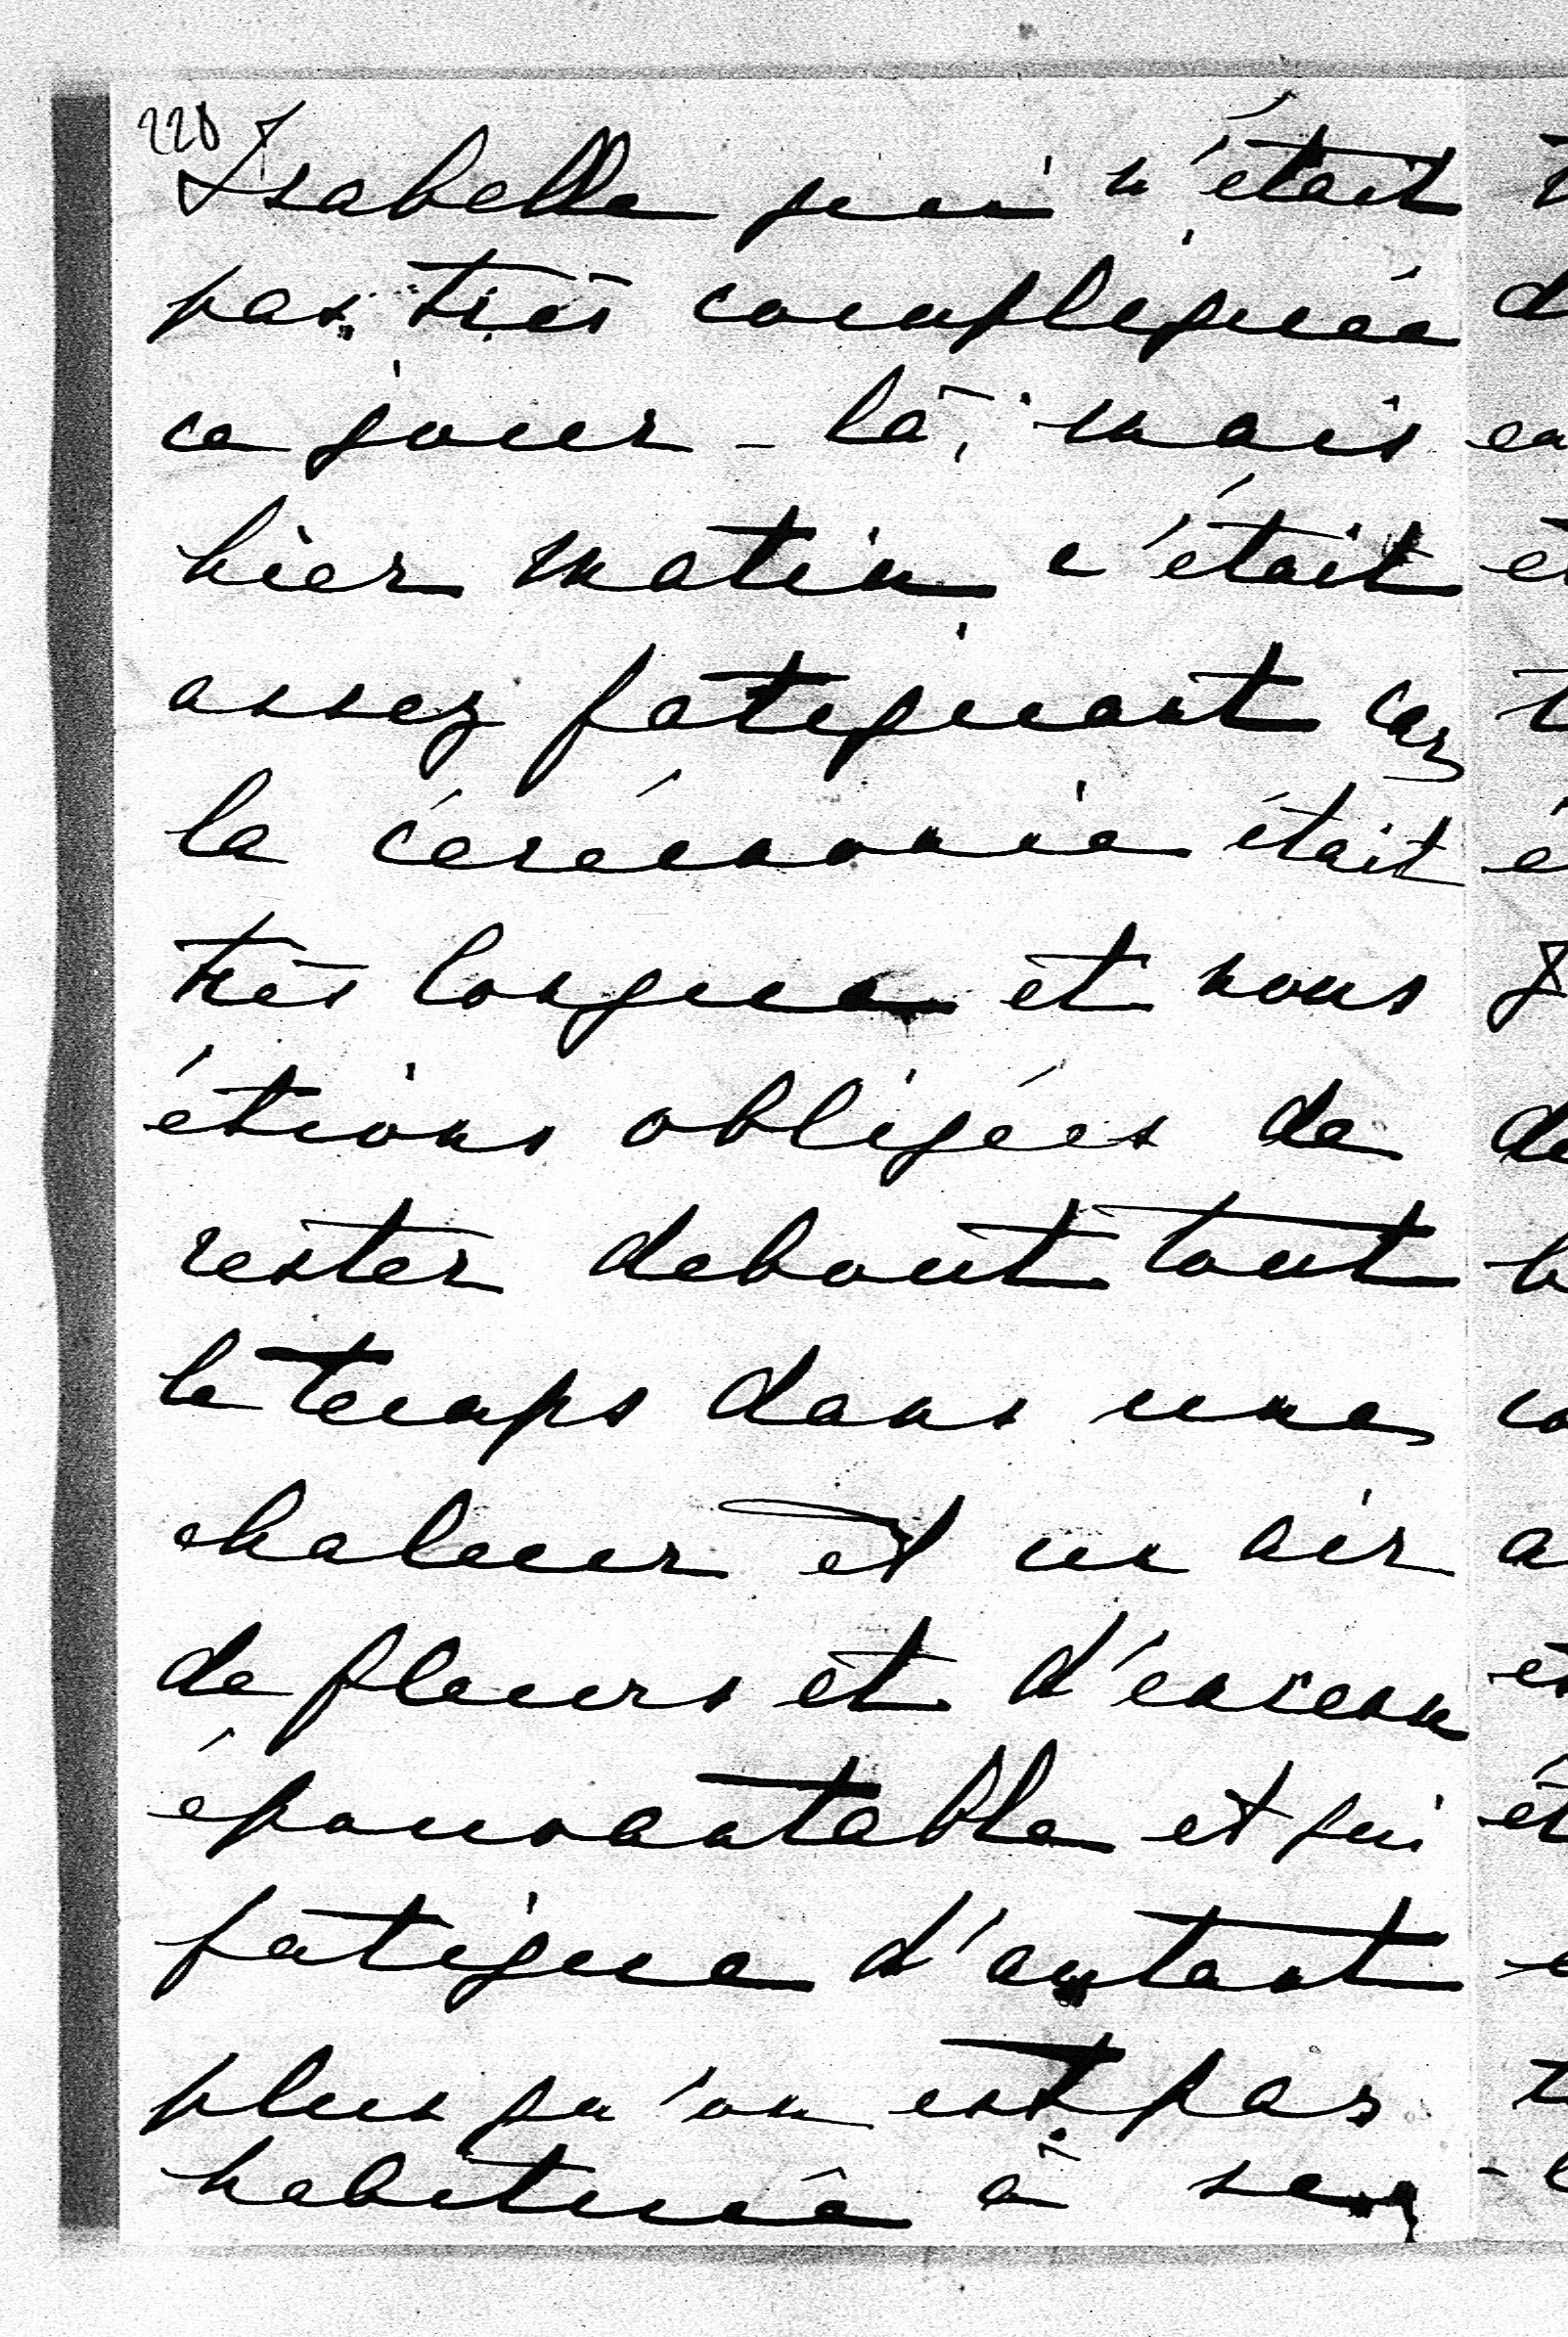 220
Isabelle qui n'était
pas très compliquée
ce jour-là, mais
hier matin c'était
assez fatiguant car
la cérémonie était
très longue et nous
étions obligées de
rester debout tout
le temps dans une
chaleur et un air
de fleurs et d'encens
épouvantable et qui
fatigue d'autant
plus qu'on est pas
habitué à